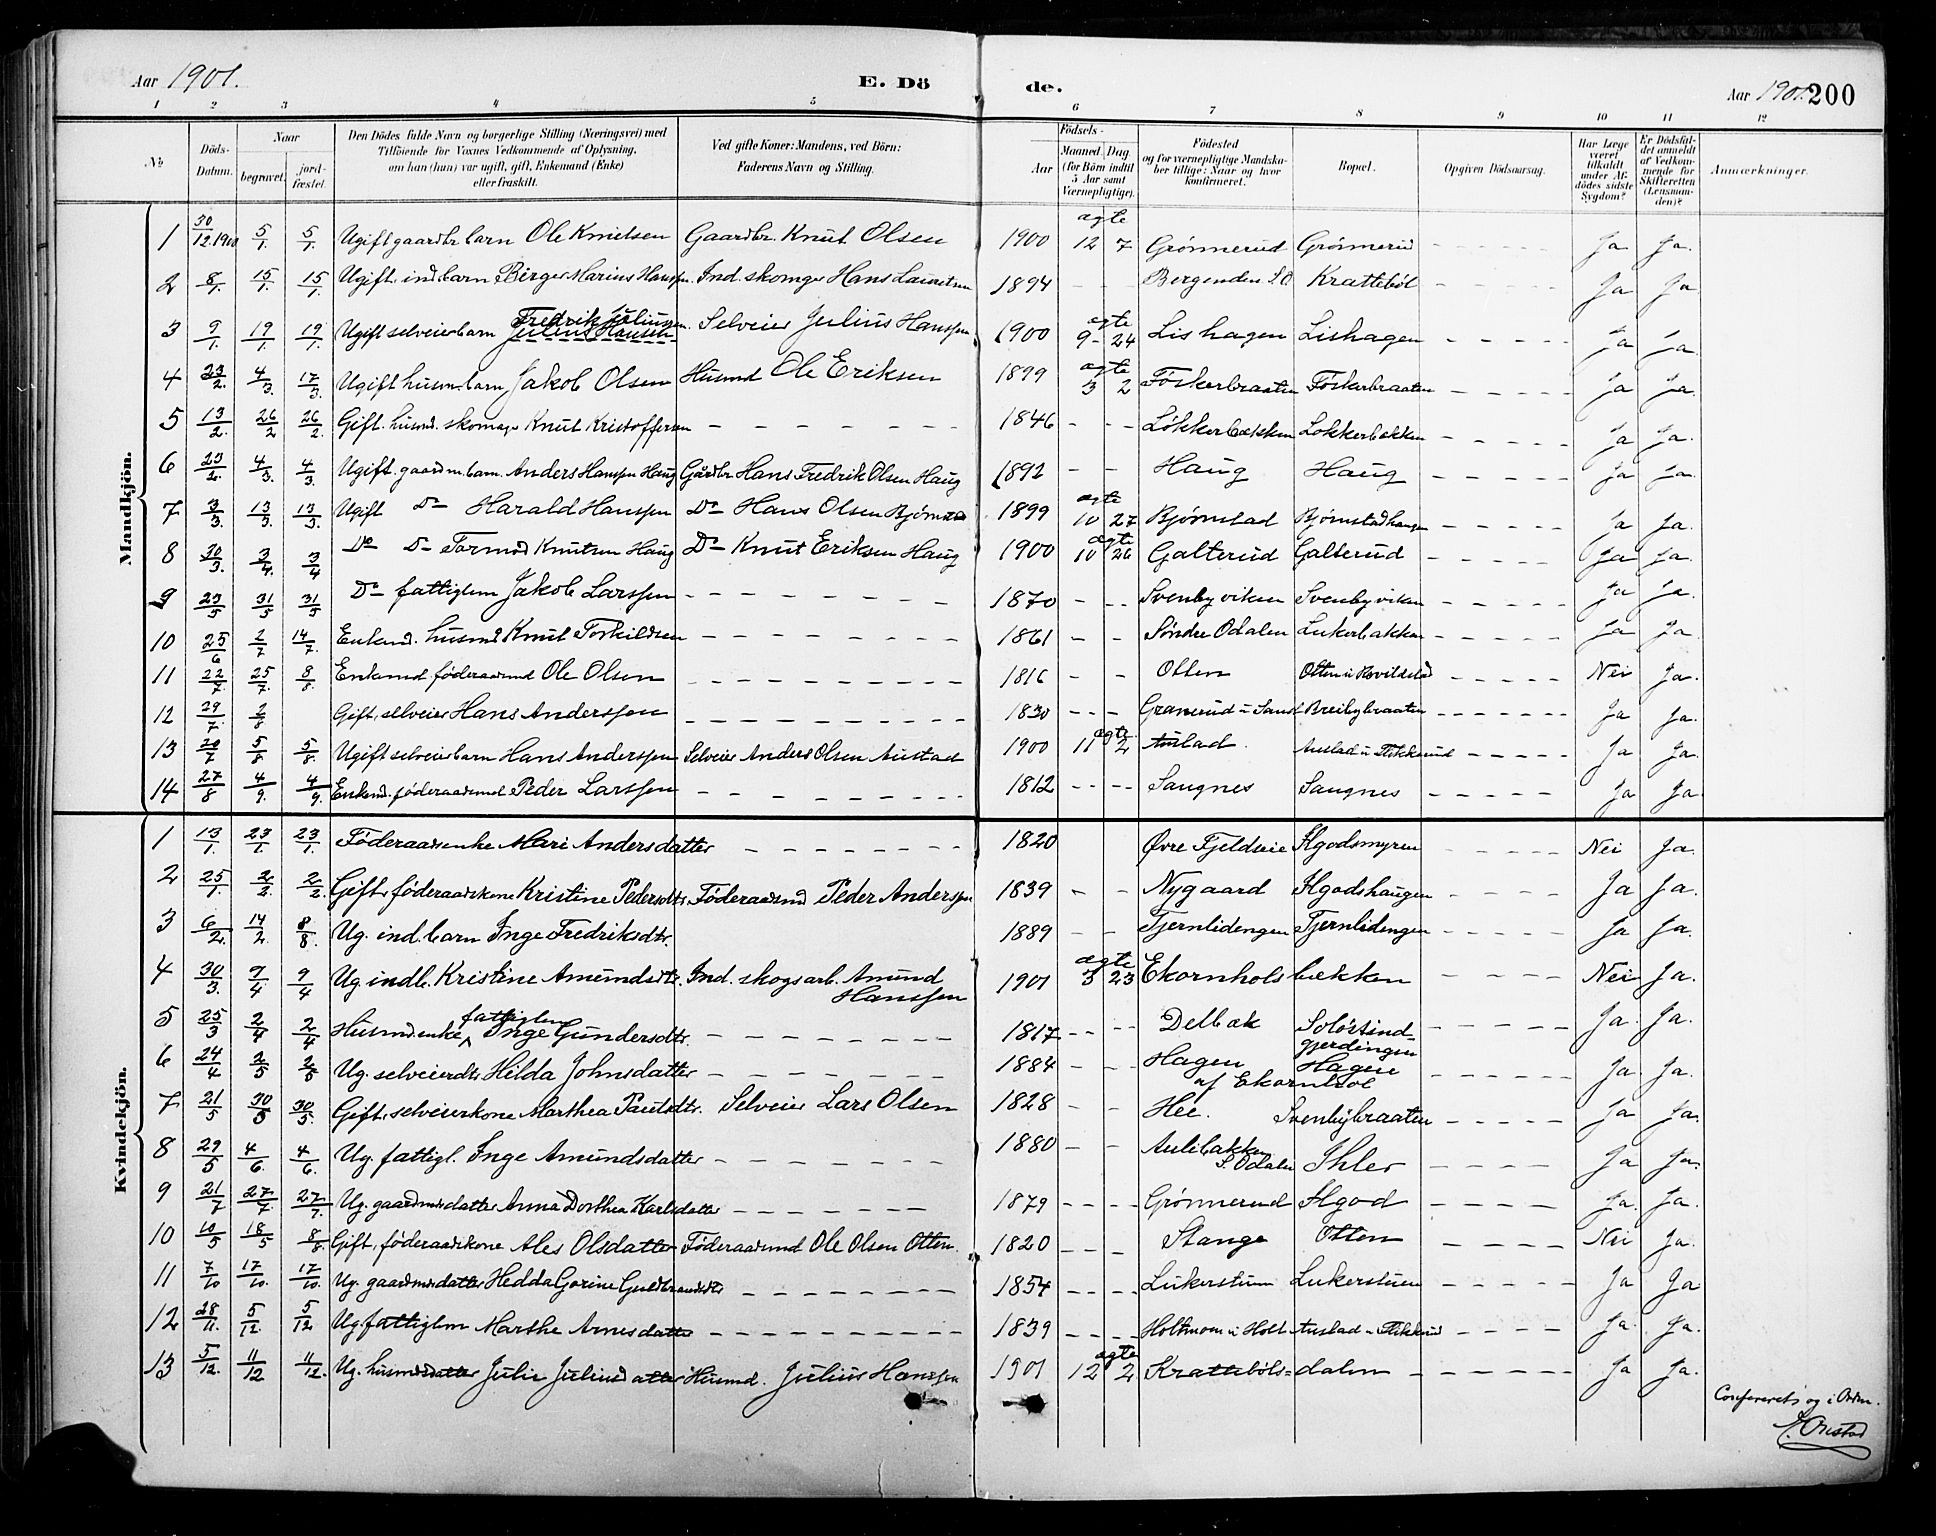 Aar 1901. E. Döde. Aar 1901. 200
1 2 3 4 5 6 7 8 9 10 11 12
No
Döds-Datum.
Naar
begravet.
jord-fæstet.
Den Dödes fulde Navn og borgerlige Stilling (Næringsvei) med
Tilföiende for Voxnes Vedkommende af Oplysning,
om han (hun) var ugift, gift, Enkemand (Enke)
eller fraskilt.
Ved gifte Koner: Mandens, ved Börn:
Faderens Navn og Stilling.
Födsels-
Aar
Maaned. Dag
(for Börn indtil
5 Aar samt
Værnepligtige).
Födested
og for værnepligtige Mandska-
ber tillige: Naar og hvor
konfirmeret.
Bopæl.
Opgiven Dödsaarsag.
Har Læge
været
tilkaldt
under Af-
dödes sidste
Sygdom?
Er Dödsfal-
det anmeldt
af Vedkom-
mende for
Skifteretten
(Lensman-
den)?
Anmærkninger.
Mandkjön.
1 30/12.1900 5/1. 5/1. Ugift gaardbr. barn Ole Knutsen Gaardbr. Knut Olsen 1900 ægte 12 7 Grönnerud Grönnerud - - - - - Ja Ja.
2 8/1. 15/1. 15/1. Ugift. ind. barn Birger Marius Hanssen. Ind. skomger Hans Lauritsen 1894 - - Bergenden S.O Krattebøl Ja Ja
3 9/1. 19/1. 19/1. Ugift selveierbarn Fredrik Juliussen. Julius Hansen Selveier Julius Hanssen 1900 ægte 9 - 24 Lishagen Lishagen - - - - - Ja Ja.
4 23/2. 4/3. 17/3. Ugift husm. barn Jakob Olsen Husmd Ole Eriksen 1899 ægte 3 2 Föskerbraaten Föskerbraaten - - - - Ja Ja.
5 13/2. 26/2 26/2. Gift. husmd. skomager Knut Kristoffersen - - - - - 1846 - - - Løkkerbækken Lokkerbakken - - - - - Ja Ja.
6 23/2. 4/3. 4/3. Ugift. gaardm. barn. Anders Hanssen Haug Gårdbr. Hans Fredrik Olsen Haug 1892 - - Haug Haug - - - - - Ja Ja.
7 3/3. 13/3. 13/3. Ugift Do Harald Hanssen Do Hans Olsen 1899 ægte 10 27 Bjørnstad Bjørnstadhaugen - - - - Ja Ja.
8 30/3. 3/4. 3/4 Do Do Tormod Knutsen Haug Do Knut Eriksen Haug 1900 ægte 10 26 Galterud Galterud - - - - - Ja Ja.
9 23/5 31/5 31/5 Do fattiglem Jakob Larssen - - - - - 1870 - - - Svenbyviken Svenbyviken - - - - - Ja Ja.
10 25/6 2/7 14/7. Enkemd. husmd Knut Torkildsen - - - - - 1861 - - Söndre Odalen Lukerbakken - - - - - Ja Ja
11 22/7. 25/7. 8/8. Enkemd. föderaadsmd Ole Olsen - - - - - 1816 - - Otten Otten - - - - - Nei Ja.
12 29/7. 2/8 Gift, selveier Hans Anderssen - - - - - 1830 - - - Granerud Breibybraaten - - - - - Ja Ja.
13 20/7 5/8 5/8. Ugift selveierbarn Hans Anderssen Selveier Anders Olsen Austad 1900 ægte 11 2 Austad. Austad u Flikkerud Ja Ja.
14 27/8 4/9. 4/9. Enkemd. föderaadsmd Peder Larssen - - - - - 1812 - - - - Saugnes Saugnes - - - - - Ja Ja.
Kvindekjön.
1 13/1. 23/1. 23/1. Föderaadsenke Mari Andersdatter - - - - - 1820 Øvre Fjeldseie Ilgodsmyren - - - - - Nei Ja.
2 25/1. 2/2. 2/2. Gift, föderaadskone Kristine Pedersdtr. Föderaadsmd Peder Anderssen 1839 - - Nygaard Ilgodshaugen - - - - Ja Ja.
3 6/2. 14/2. 8/8. Ug. ind. barn Inge Fredriksdtr. 1889 - - Tjernlidengen Tjernlidengen - - - - - Ja Ja.
4 30/3. 9/4 9/4 Ug. indb. Kristine Amundsdtr. Ind. skogsarb. Amund Hanssen 1901 ægte 3 23 Ekornholsbækken - - - - Nei Ja.
5 25/3 2/4 2/4 Husmdenke, fattiglem Inge Gundersdtr. - - - - - 1817 - - - - Delbæk Solörsindgjerdingen - - - - - Ja. Ja.
6 24/4 2/5 2/5 Ug. selveierdtr Hilda Johnsdatter - - - - 1884 - - - Hagen Hagen af Ekornhol - - - - - Ja. Ja.
7 21/5 30/5 30/5. Gift, selveierkone Marthea Paulsdtr. Selveier Lars Olsen 1828 - - Hee. Svenbybraaten - - - - - Ja Ja.
8 29/5 4/6. 4/6. Ug. fattigl. Inge Amundsdatter - - - - - 1880 - - Aulibakken S. Odalen Ihler - - - - Ja Ja.
9 21/7 27/7. 27/7. Ug. gaardmdsdatter Anna Dorthea Karlsdatter - - - - - 1879 - - - - Grönnerud Ilgod - - - - Ja. Ja.
10 10/5 18/5 8/8. Gift, föderaadskone Ales Olsdatter Föderaadsmd Ole Olsen Otten. 1820 - - - Stange Otten - - - - Nei Ja.
11 7/10 17/10. 17/10. Ug. gaardmdsdatter Hedda Gorine Guldbrandsdtr - - - - - 1854 - - - - Lukerstuen Lukerstuen - - - - - Ja Ja
12 28/11. 5/12. 5/12 Ug. fattiglem Marthe Arnesdatter - - - - - 1839 - - - - Holtmoen u Holt Austad u Flikkerud - - - - Ja. Ja.
13 5/12. 11/12 11/12. Ug. husmdsdatter Julie Juliusdatter Husmd. Julius Hanssen 1901 ægte 12 2 Krattebölsdalen - - - - - Ja Ja.
Confereret og i Orden.